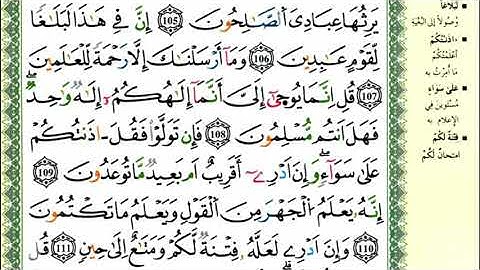 يَرِثُهَا عِبَادِيَ ٱلصَّٰلِحُونَ 105 إِنَّ فِي هَٰذَا لَبَلَٰغًا
لِّقَوْمٍ عَٰبِدِينَ 106 وَمَآ أَرْسَلْنَٰكَ إِلَّا رَحْمَةً لِّلْعَٰلَمِينَ
107 قُلْ إِنَّمَا يُوحَىٰٓ إِلَيَّ أَنَّمَآ إِلَٰهُكُمْ إِلَٰهٌ وَٰحِدٌ
فَهَلْ أَنتُم مُّسْلِمُونَ 108 فَإِن تَوَلَّوْاْ فَقُلْ ءَاذَنتُكُمْ
عَلَىٰ سَوَآءٍ وَإِنْ أَدْرِيٓ أَقَرِيبٌ أَم بَعِيدٌ مَّا تُوعَدُونَ 109
إِنَّهُۥ يَعْلَمُ ٱلْجَهْرَ مِنَ ٱلْقَوْلِ وَيَعْلَمُ مَا تَكْتُمُونَ
110 وَإِنْ أَدْرِي لَعَلَّهُۥ فِتْنَةٌ لَّكُمْ وَمَتَٰعٌ إِلَىٰ حِينٍ 111 قُلْ
لَبَلَاغًا
وُصُولًا إِلَى الْبُغْيَةِ
ءَاذَنْتُكُمْ
أَعْلَمْتُكُمْ
مَا أُمِرْتُ بِهِ
عَلَىٰ سَوَاءٍ
مُسْتَوِينَ فِي
الْإِعْلَامِ بِهِ
فِتْنَةٌ لَّكُمْ
امْتِحَانٌ لَكُمْ